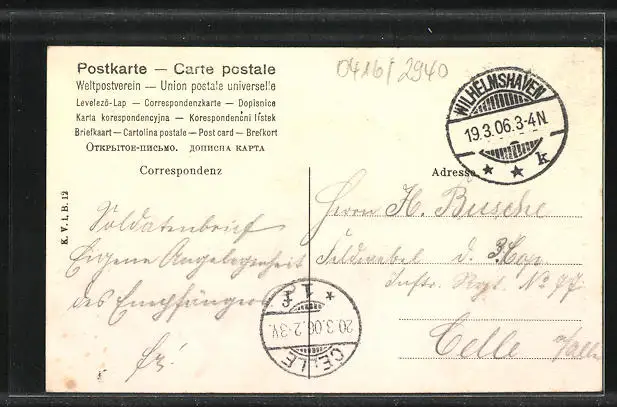 Postkarte — Carte postale
Weltpostverein — Union postale universelle
Levelező-Lap — Correspondenzkarte — Dopisnice
Karta korespondencyjna — Korespondenční lístek
Briefkaart — Cartolina postale — Post card — Brefkort
Открытое-письмо. дописна карта
0416/2940
WILHELMSHAVEN
19.3.06.3-4N.
* * k
Correspondenz
Adresse
K. V. i. B. 12
Soldatenbrief
Eigene Angelegenheit
des Empfängers
Herrn H. Busche
Feldwebel d. 3. Cop.
Inftr. Rgt. No 77
Celle
CELLE
20.3.06.2-3V.
* 1 *